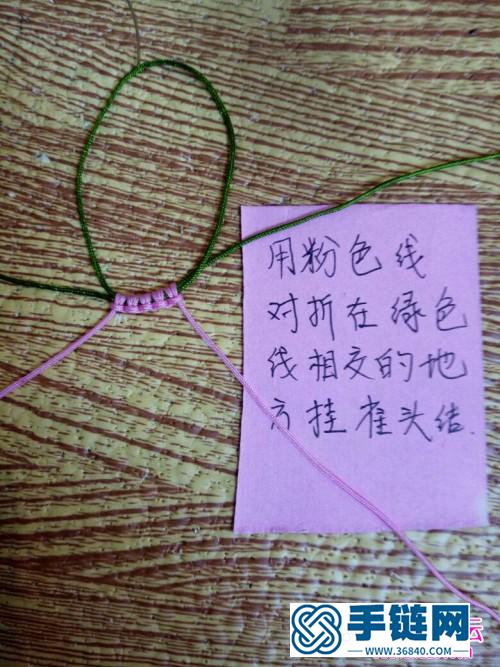 用粉色线
对折在绿色
线相交的地
方挂雀头结.
手链网
www.36840.com